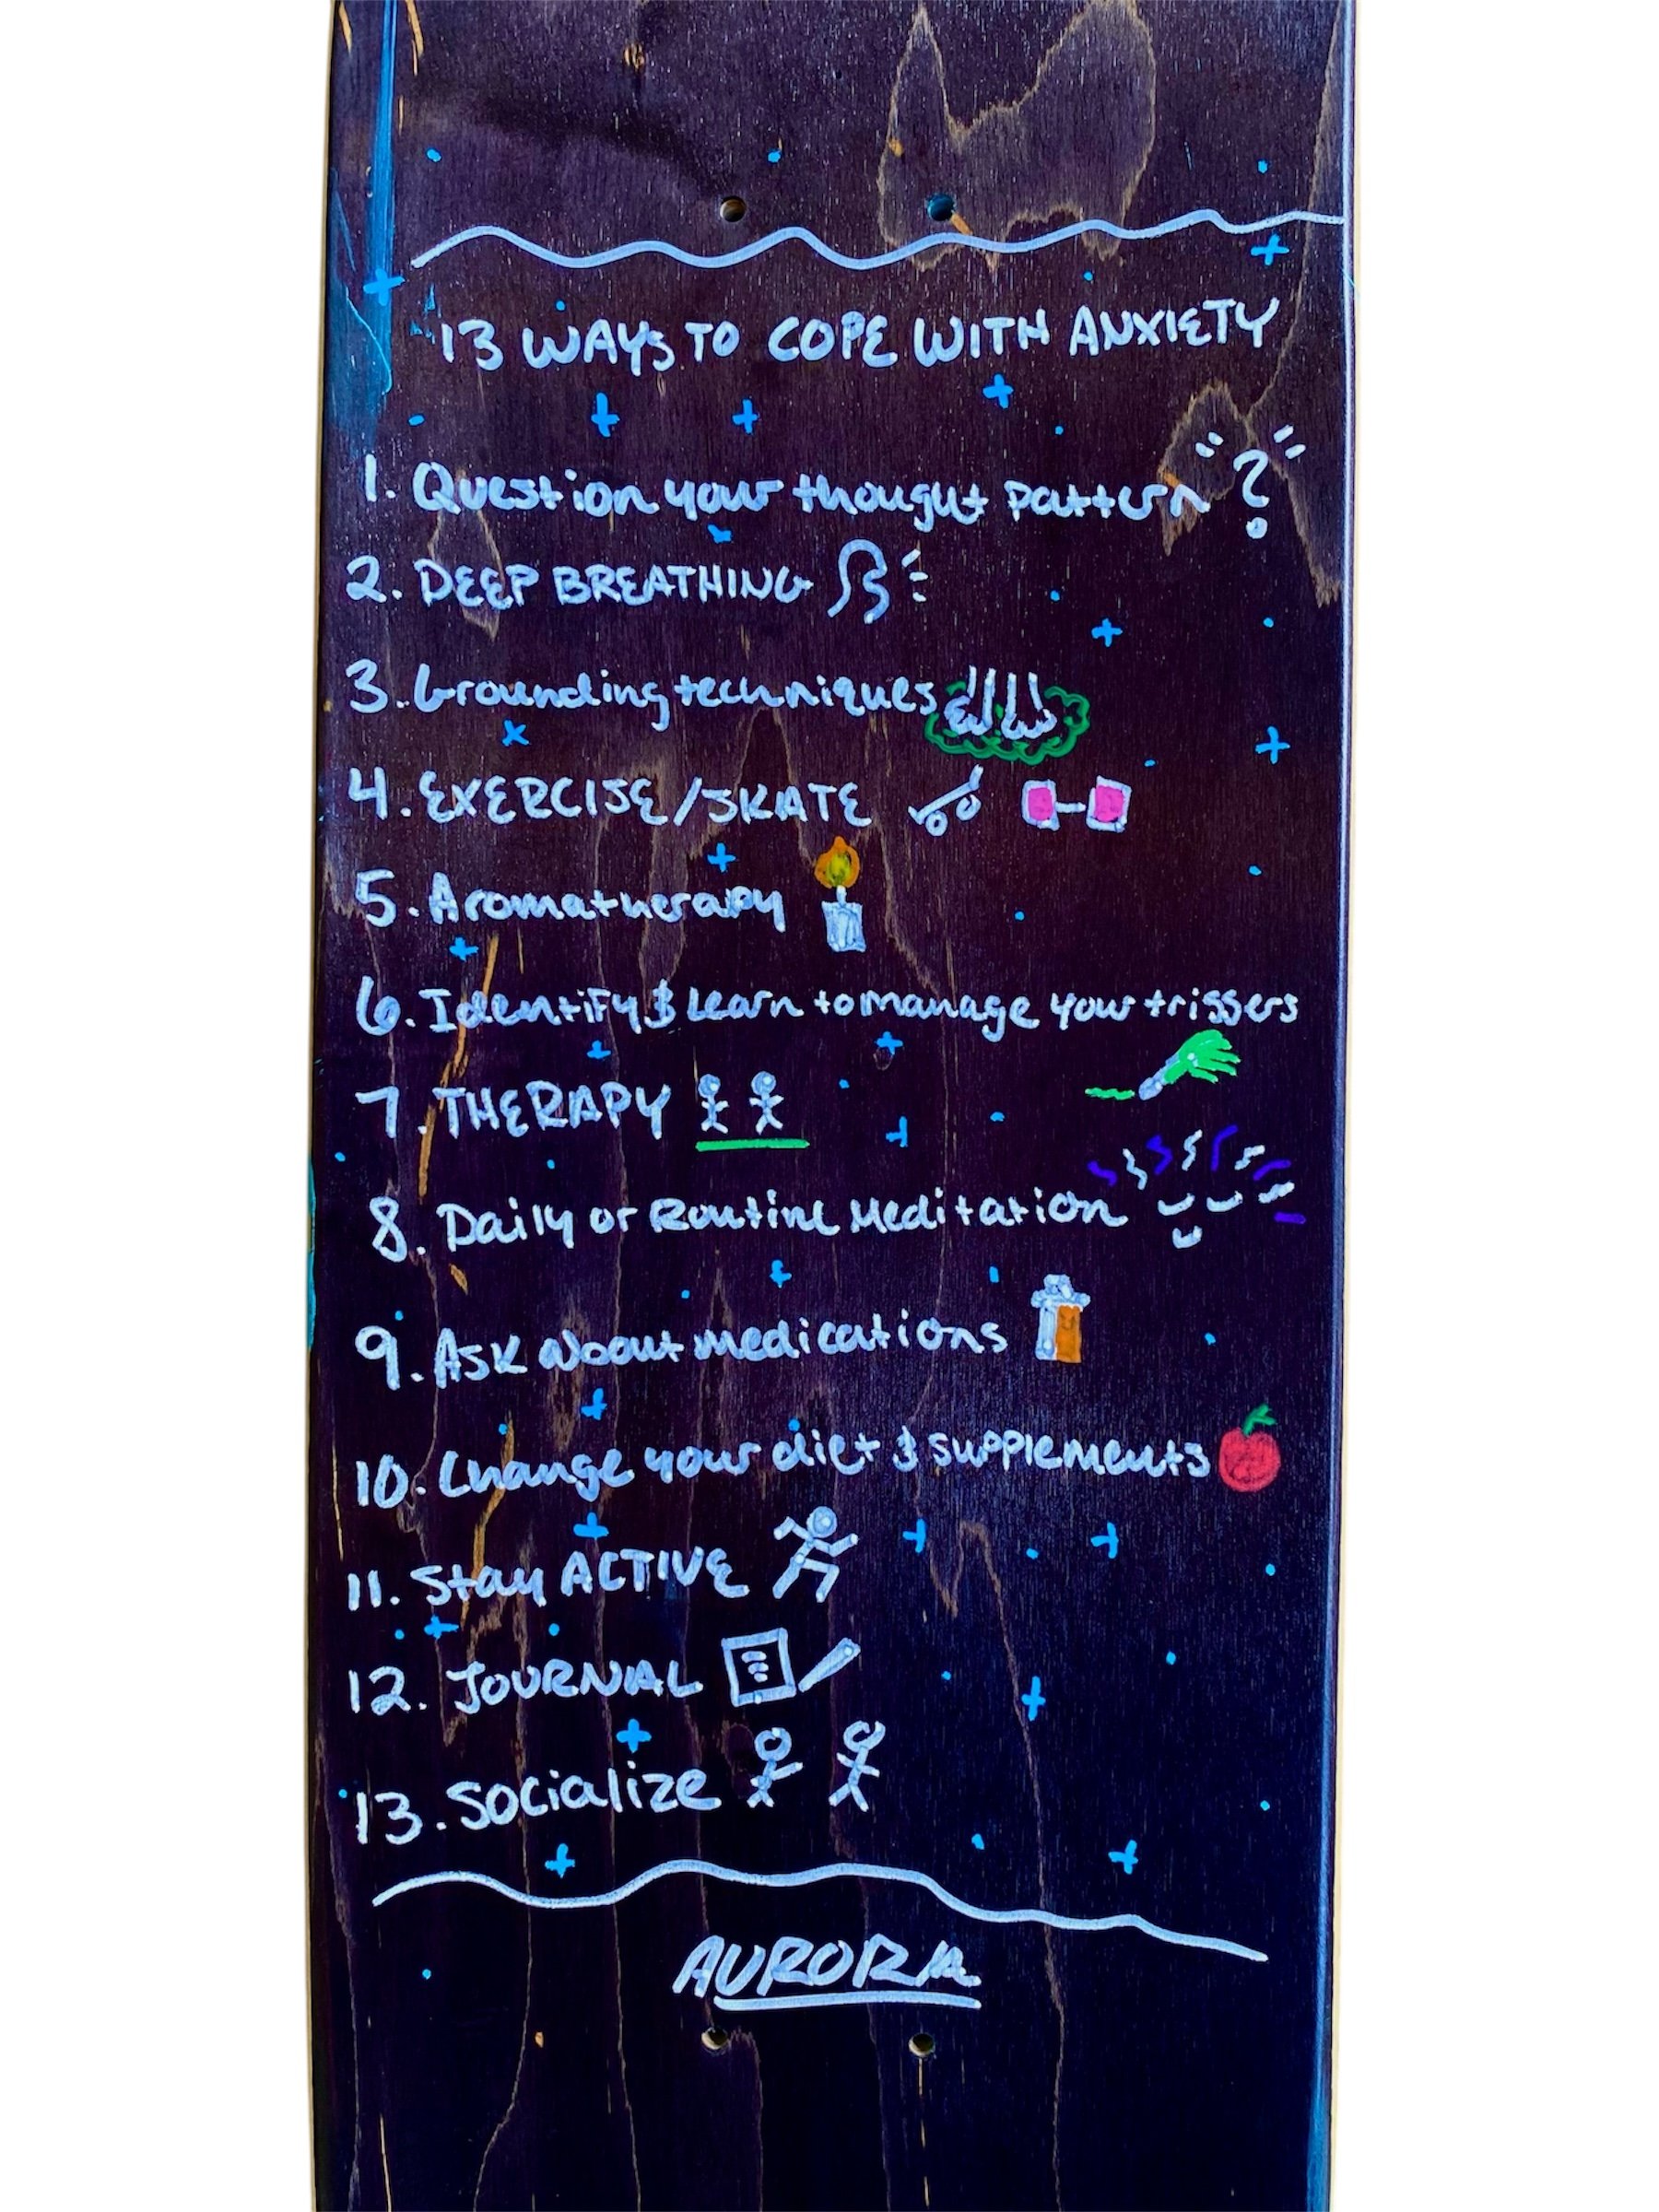 13 WAYS TO COPE WITH ANXIETY
1. Question your thought pattern ?
2. DEEP BREATHING
3. Grounding techniques
4. EXERCISE/SKATE
5. Aromatherapy
6. Identify & Learn to manage your triggers
7. THERAPY
8. Daily or Routine Meditation
9. Ask about medications
10. Change your diet & supplements
11. Stay ACTIVE
12. JOURNAL
13. Socialize
AURORA